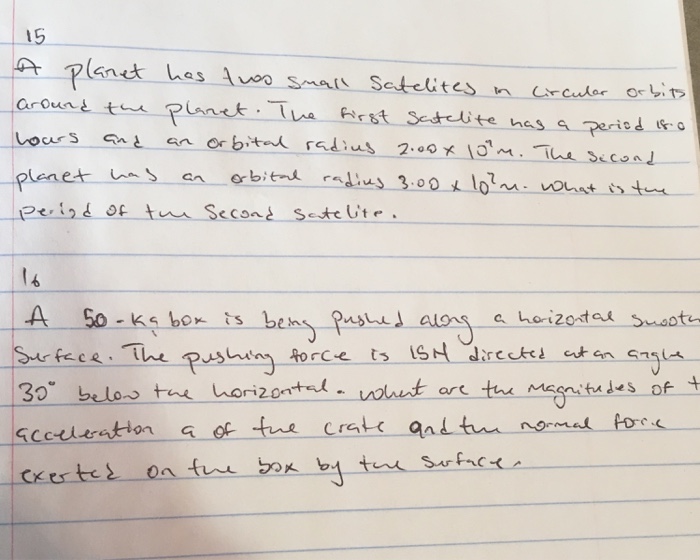 15
A planet has two small Satelites in circular orbits
around the planet. The first Satelite has a period 18.0
hours and an orbital radius 2.00 x 10⁷m. The Second
planet has an orbital radius 3.00 x 10⁷m. What is the
period of the Second Satelite.
16
A 50-Kg box is being pushed along a horizontal smooth
Surface. The pushing force is 15N directed at an angle
30° below the horizontal. what are the Magnitudes of t
acceleration a of the crate and the normal force
exerted on the box by the surface.